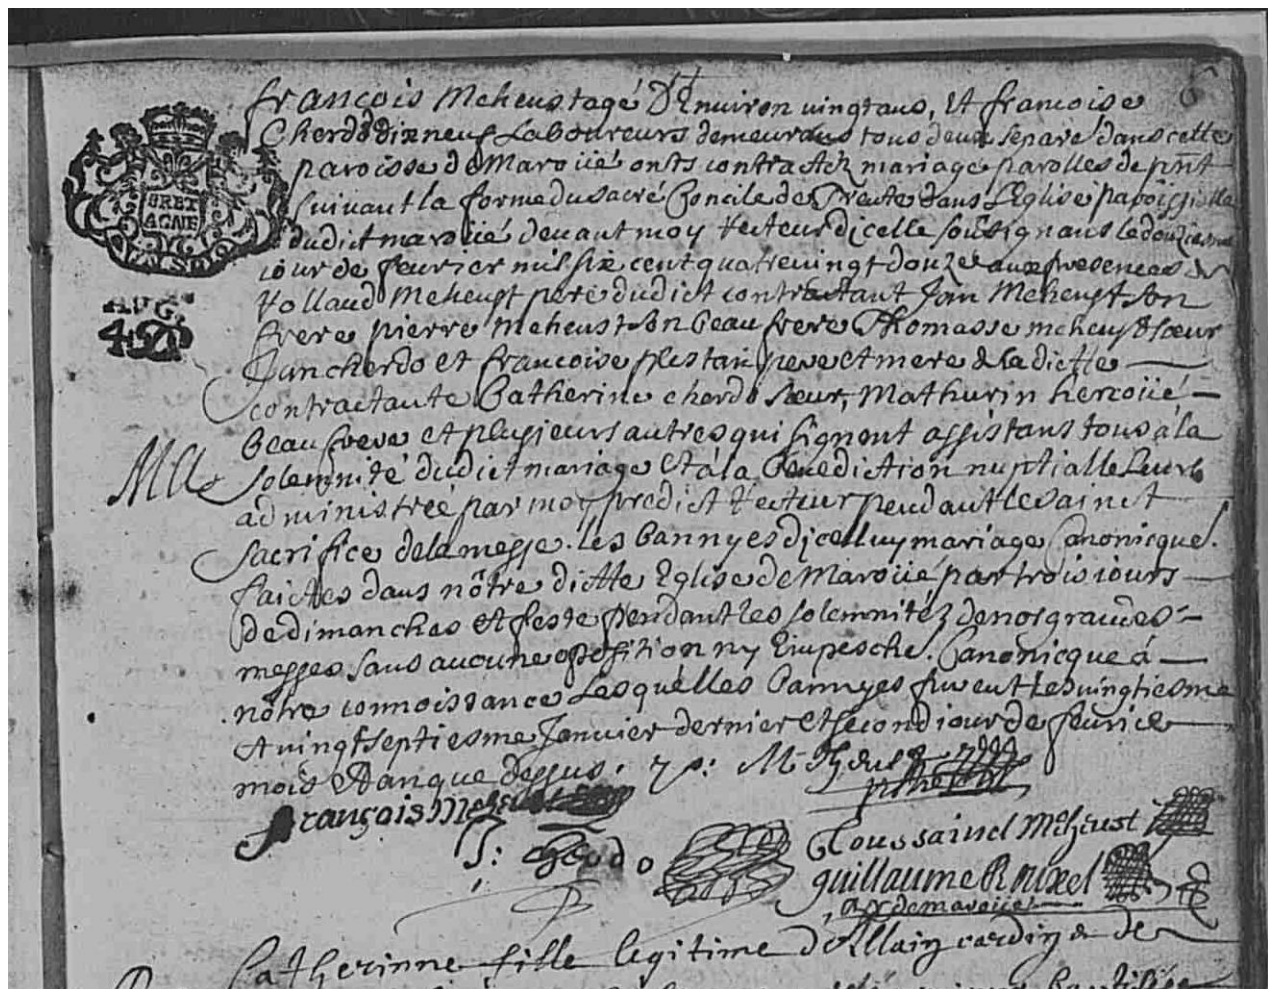 6
françois Meheust agé D'Environ vingt ans, Et francoise
Cherdo dix neuf Laboureurs demeurans tous deux separé dans cette
paroisse de Maroüé onts contractéz mariage parolles de pñt
suivant la forme du sacré Concile de Trente dans L'Eglise paroissielle
dudict maroüé devant moy Recteur dicelle soûsignans le douziesme
iour de feuvrier mil six cent quatre vingt douze aux presences de
Rolland Meheust pere dudict contractant Jan Meheust son
frere pierre meheust son beau frere Thomasse meheust sœur
Jan cherdo et francoise plestan pere et mere de la dictte
contractante Catherine cherdo sœur, Mathurin hercoüé
beau frere et plusieurs autres qui signont assistans tous à la
solemnité dudict mariage Et à la Bénediction nuptialle Leurs
administrée par moy predict Recteur pendant le sainct
sacrifice de la messe. les bannyes dicelluy mariage Canonicque.
faictes dans nôtre dictte Eglise de Maroüé par trois iours
de dimanches et feste pendant les solemnitéz de nos grandes
messes sans aucune oposition ny Empesche. Canonicque à
nôtre connoissance Lesquelles bannyes furent Les vingtiesme
et vingt septiesme Janvier dernier et second iour de feuvrier
mois et an que dessus. M Meheust
françois Meheust
J: Cherdo
Toussainct Meheust
guillaume Rouxel
Rr de maroüé
Catherinne fille legitime d'Allain cardin & de
BRET
AGNE